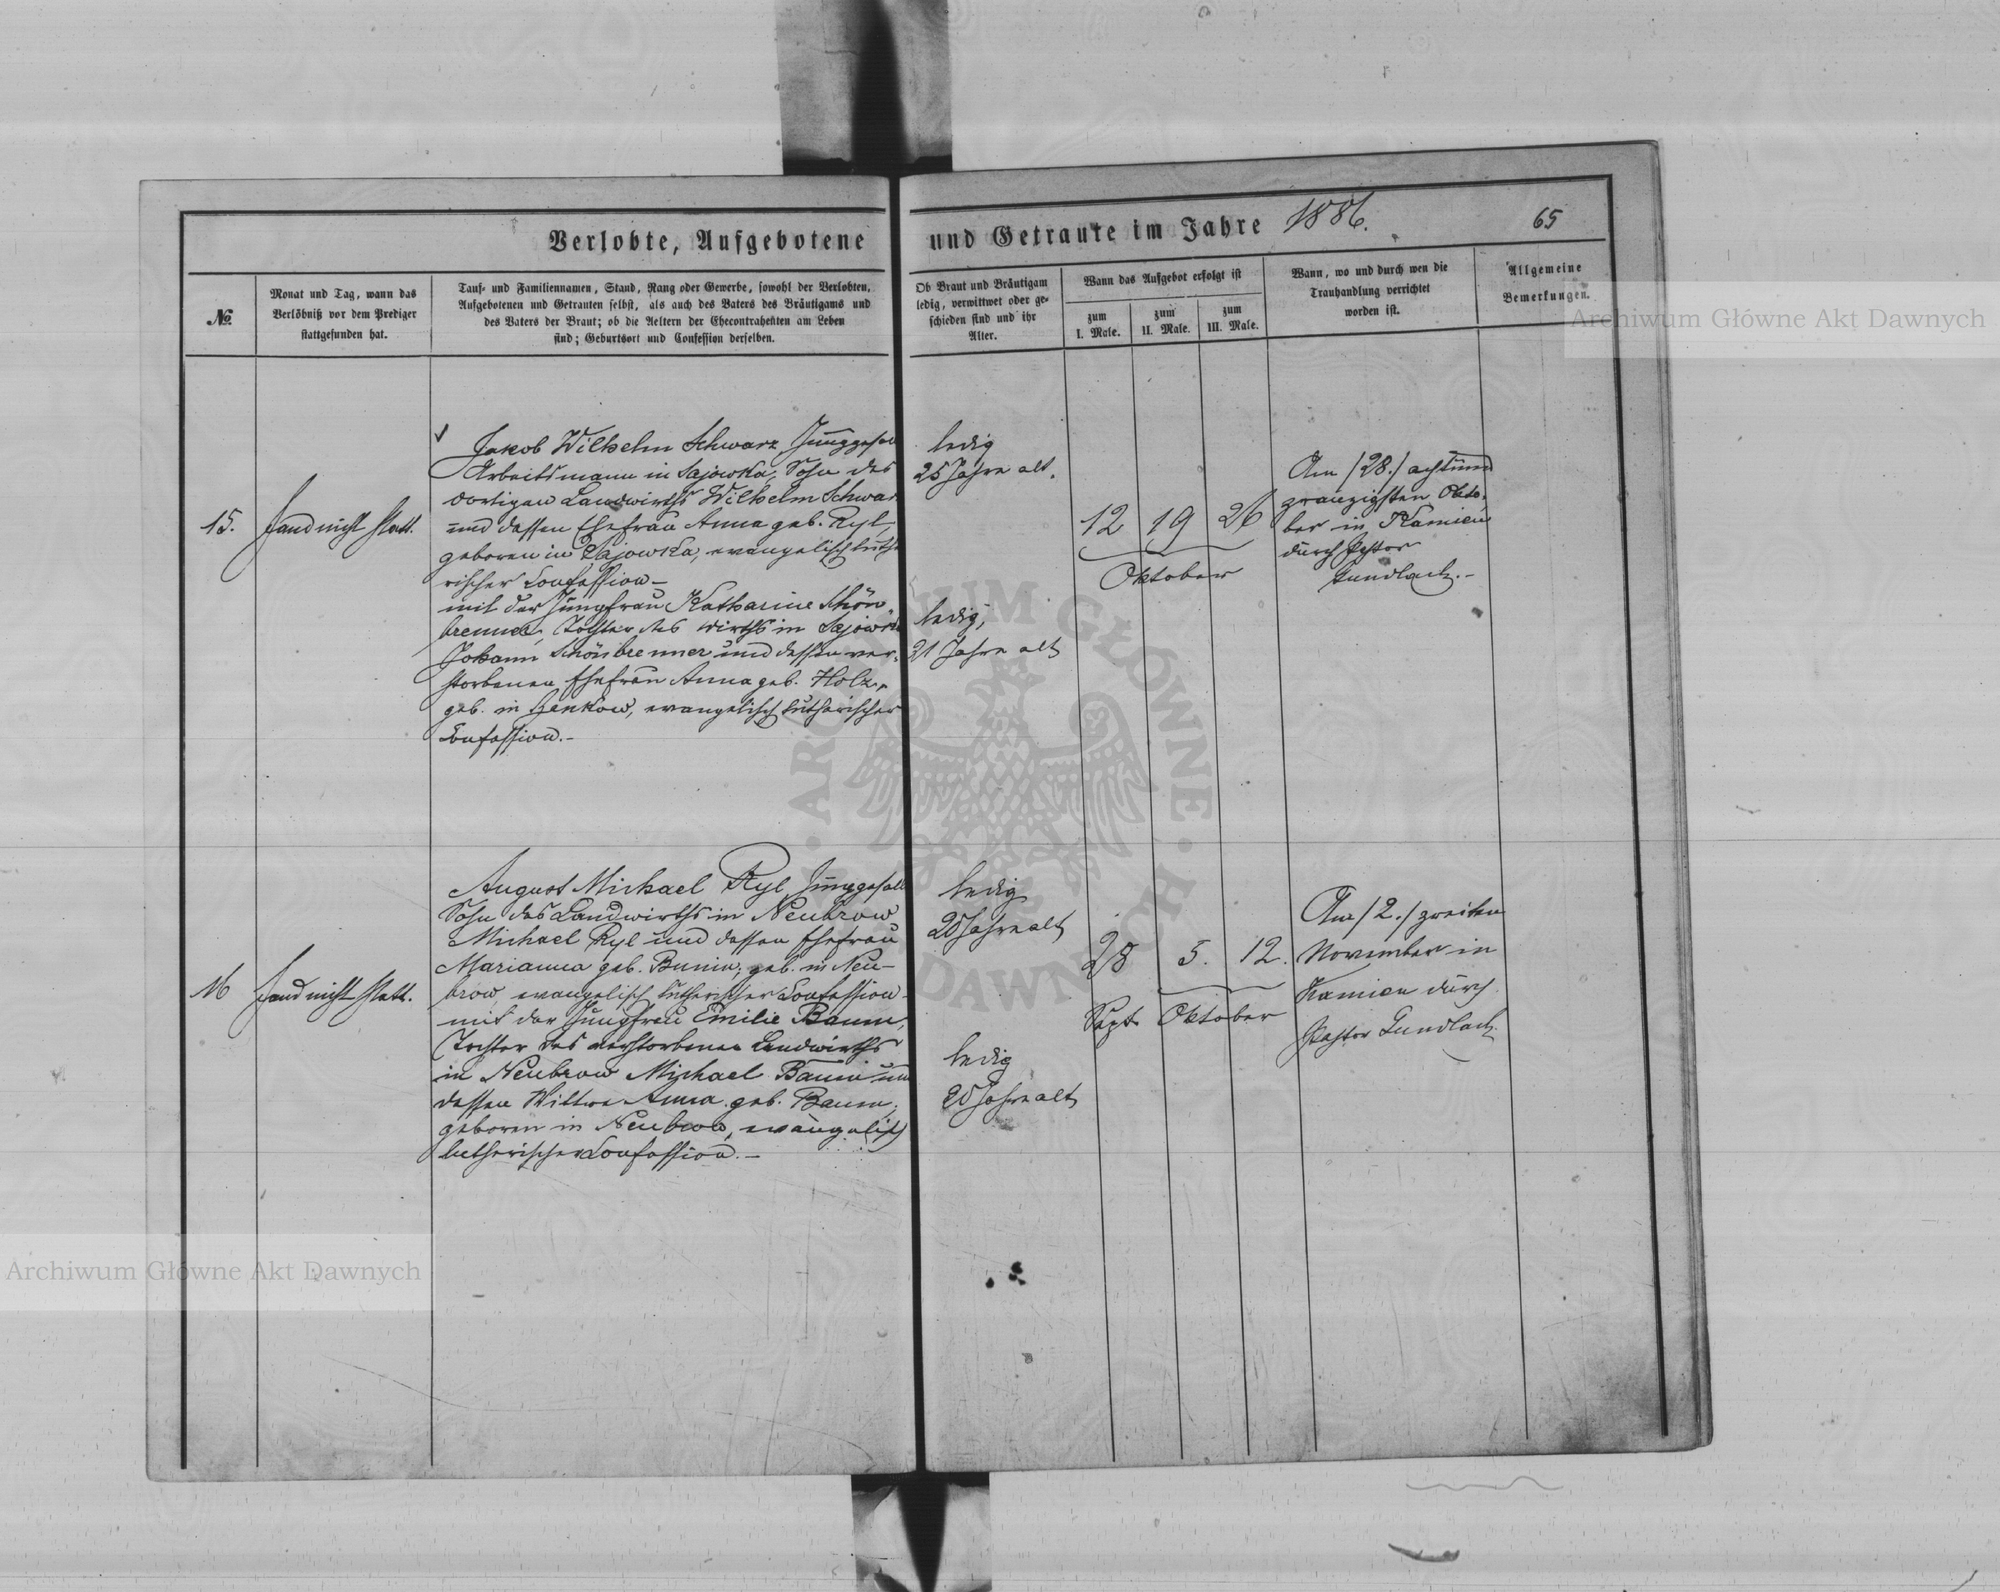 Verlobte, Aufgebotene und Getraute im Jahre 1886.
65
No.
Monat und Tag, wann das
Verlöbniß vor dem Prediger
stattgefunden hat.
Tauf- und Familiennamen, Stand, Rang oder Gewerbe, sowohl der Verlobten,
Aufgebotenen und Getrauten selbst, als auch des Vaters des Bräutigams und
des Vaters der Braut; ob die Aeltern der Ehecontrahenten am Leben
sind; Geburtsort und Confession derselben.
Ob Braut und Bräutigam
ledig, verwittwet oder ge-
schieden sind und ihr
Alter.
Wann das Aufgebot erfolgt ist
zum
I. Male.
zum
II. Male.
zum
III. Male.
Wann, wo und durch wen die
Trauhandlung verrichtet
worden ist.
Allgemeine
Bemerkungen.
15.
Fand nicht statt.
Jakob Wilhelm Schwarz, Junggesell
Arbeitsmann in Sajowka, Sohn des
dortigen Landwirths Wilhelm Schwar
und dessen Ehefrau Anna geb. Ryl,
geboren in Sajowka, evangelisch luthe
rischer Confession –
mit der Jungfrau Katharine Schön-
brenner, Tochter des Wirths in Sajowka
Johann Schönbrenner und dessen ver-
storbenen Ehefrau Anna geb. Holz,
geb. in, evangelisch lutherischer
Confession. –
ledig
25 Jahre alt.
ledig,
21 Jahre alt
12 19 26
Oktober
Am /28./ achtund
zwanzigsten Okto-
ber in Kamień
durch Pastor
Gundlach. –
16
Fand nicht statt.
August Michael Ryl, Junggesell
Sohn des Landwirths in Neubrow
Michael Ryl und dessen Ehefrau
Marianna geb.; geb. in Neu-
brow, evangelisch lutherischer Confession –
mit der Jungfrau Emilie Baum,
Tochter des verstorbenen Landwirths
in Neubrow Michael Baum und
dessen Wittwe Anna geb. Baum,
geboren in Neubrow, evangelisch
lutherischer Confession. –
ledig
Jahre alt
ledig
20 Jahre alt
28 5. 12.
Sept. Oktober
Am /2./ zweiten
November in
Kamien durch
Pastor Gundlach.
Archiwum Główne Akt Dawnych
Archiwum Główne Akt Dawnych
ARCHIWUM GŁÓWNE AKT DAWNYCH